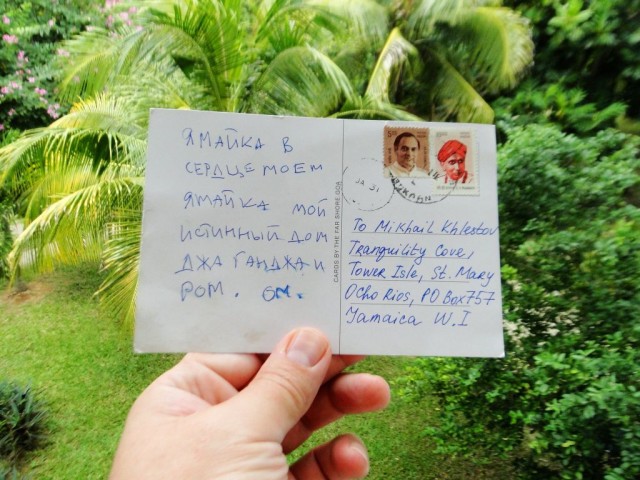 ЯМАЙКА В
СЕРДЦЕ МОЕМ
ЯМАЙКА МОЙ
ИСТИННЫЙ ДОМ
ДЖА ГАНДЖА И
РОМ. ОМ.
CARDS BY THE FAR SHORE GOA
To Mikhail Khlestov
Tranquility Cove,
Tower Isle, St. Mary
Ocho Rios, PO Box 757
Jamaica W.I